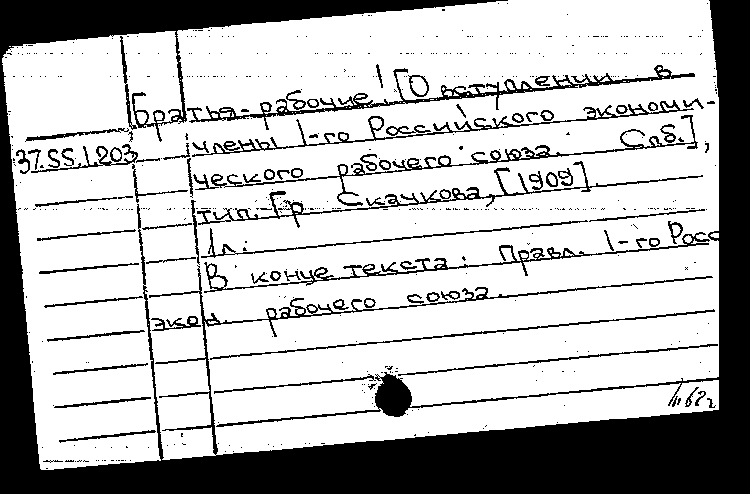 Братья-рабочие! [О вступлении в
члены 1-го Российского экономи-
37.55.1.203
ческого рабочего союза. Спб.],
тип. Гр. Скачкова, [1909]
1л.
В конце текста: Правл. 1-го Росс
экон. рабочего союза.